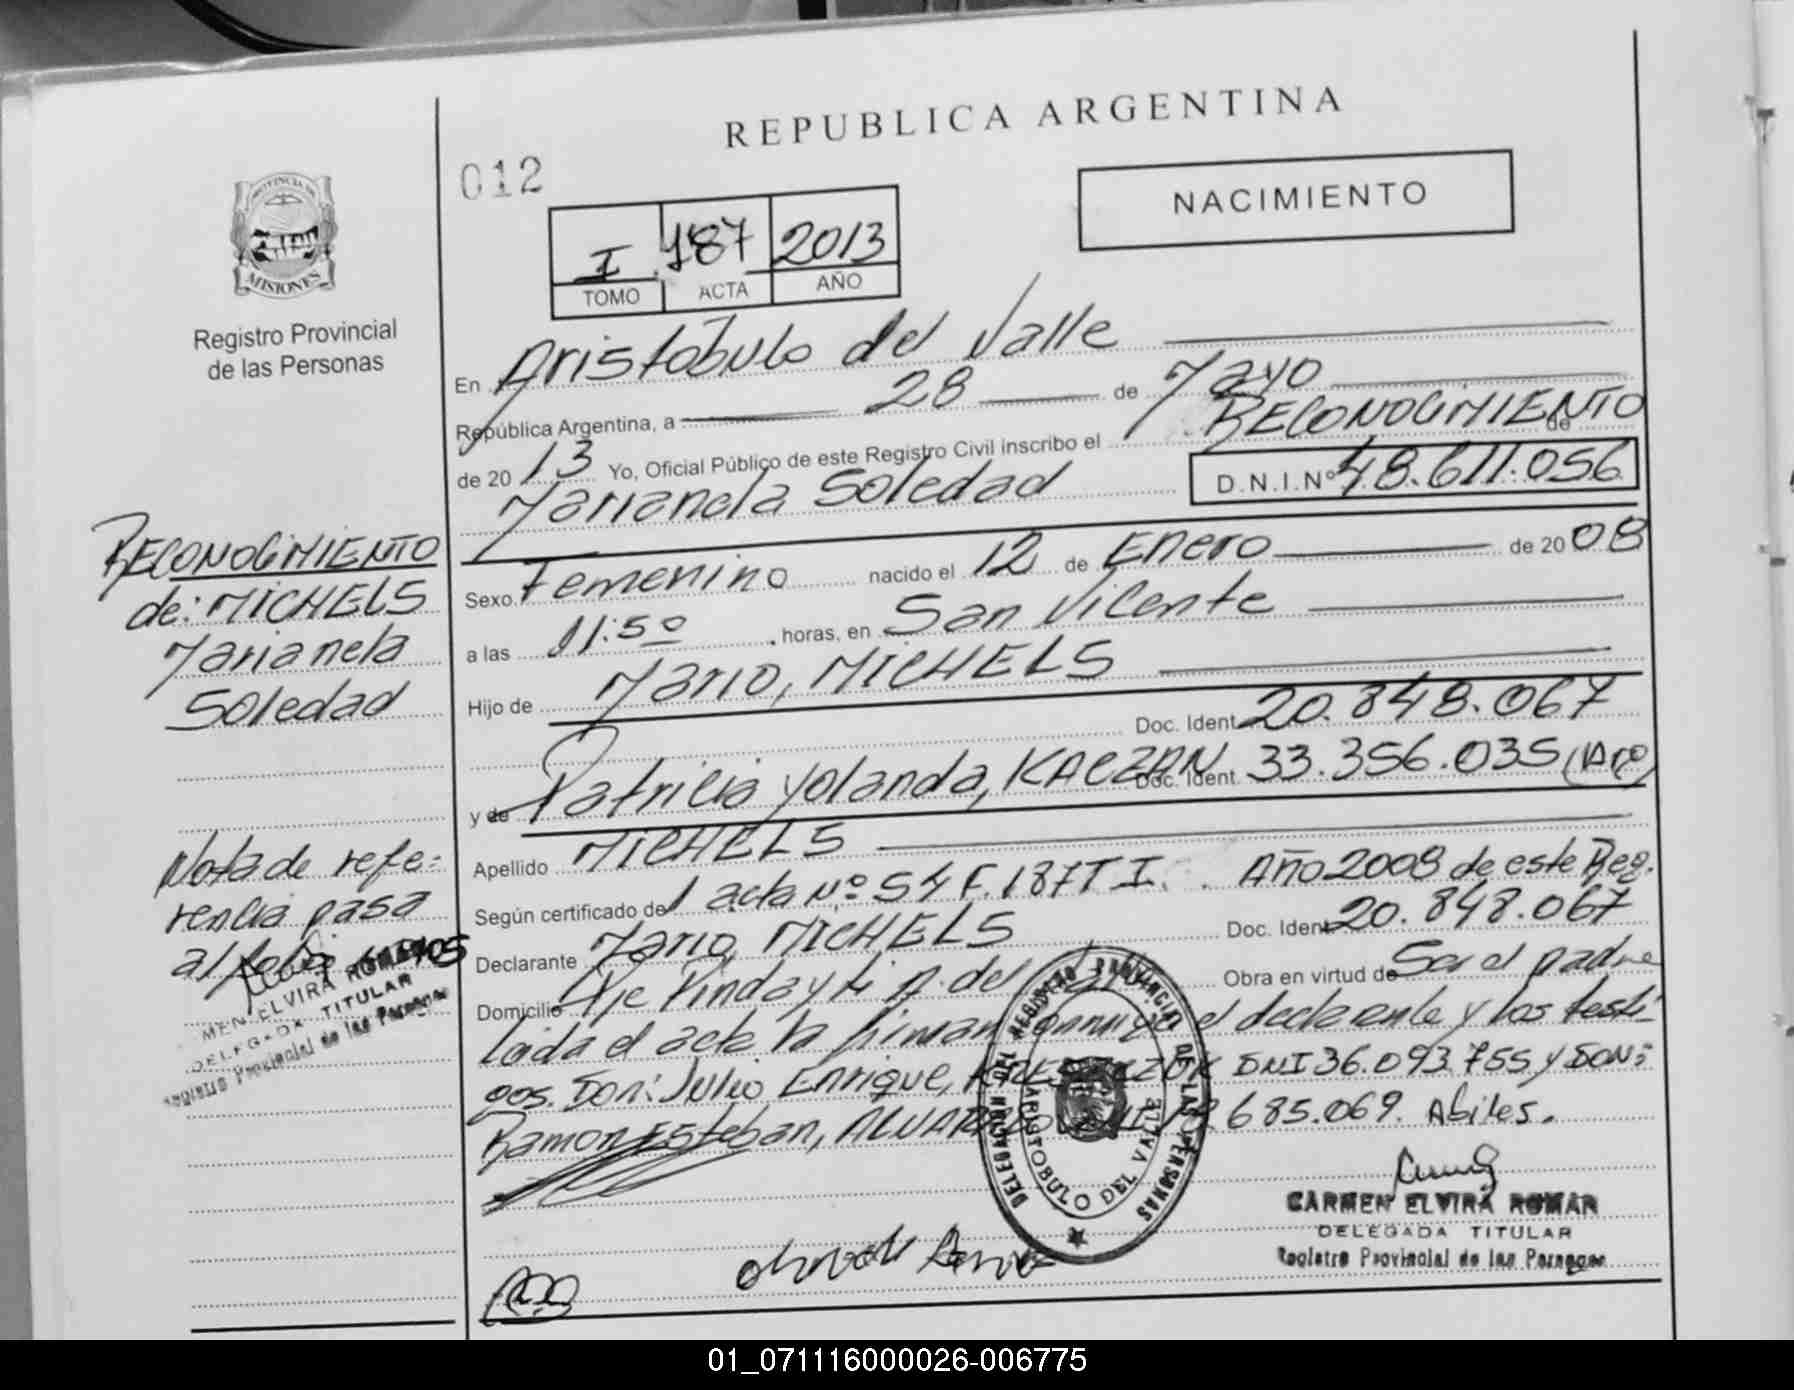 REPUBLICA ARGENTINA
012
NACIMIENTO
I 187 2013
TOMO ACTA AÑO
PROVINCIA DE
MISIONES
Registro Provincial
de las Personas
En Aristóbulo del Valle
República Argentina, a 28 de Mayo
de 2013 Yo, Oficial Público de este Registro Civil inscribo el RECONOCIMIENTO de
Marianela Soledad D.N.I.Nº 48.611.056
Sexo Femenino nacido el 12 de Enero de 2008
a las 11:50 horas, en San Vicente
Hijo de Mario, MICHELS
Doc. Ident 20.848.067
y de Patricia Yolanda, KACZAN Doc. Ident. 33.356.035 (Arg)
Apellido MICHELS
Según certificado del acta Nº 54 F. 187 T I. Año 2008 de este Reg.
Declarante Mario, MICHELS Doc. Ident 20.848.067
Domicilio Av. del Obra en virtud de Ser el padre
Leida el acta la firman conmigo el declarante y los testi-
gos. Don: Julio Enrique, DNI 36.093.755 y DON:
Ramon Esteban, 685.069. Abiles.
RECONOCIMIENTO
de: MICHELS
Marianela
Soledad
Nota de refe-
rencia pasa
al folio
ELVIRA ROMAN
DELEGADA TITULAR
Registro Provincial de las Personas
REGISTRO PROVINCIAL DE LAS PERSONAS
ARISTOBULO DEL VALLE
CARMEN ELVIRA ROMAN
DELEGADA TITULAR
Registro Provincial de las Personas
01_071116000026-006775